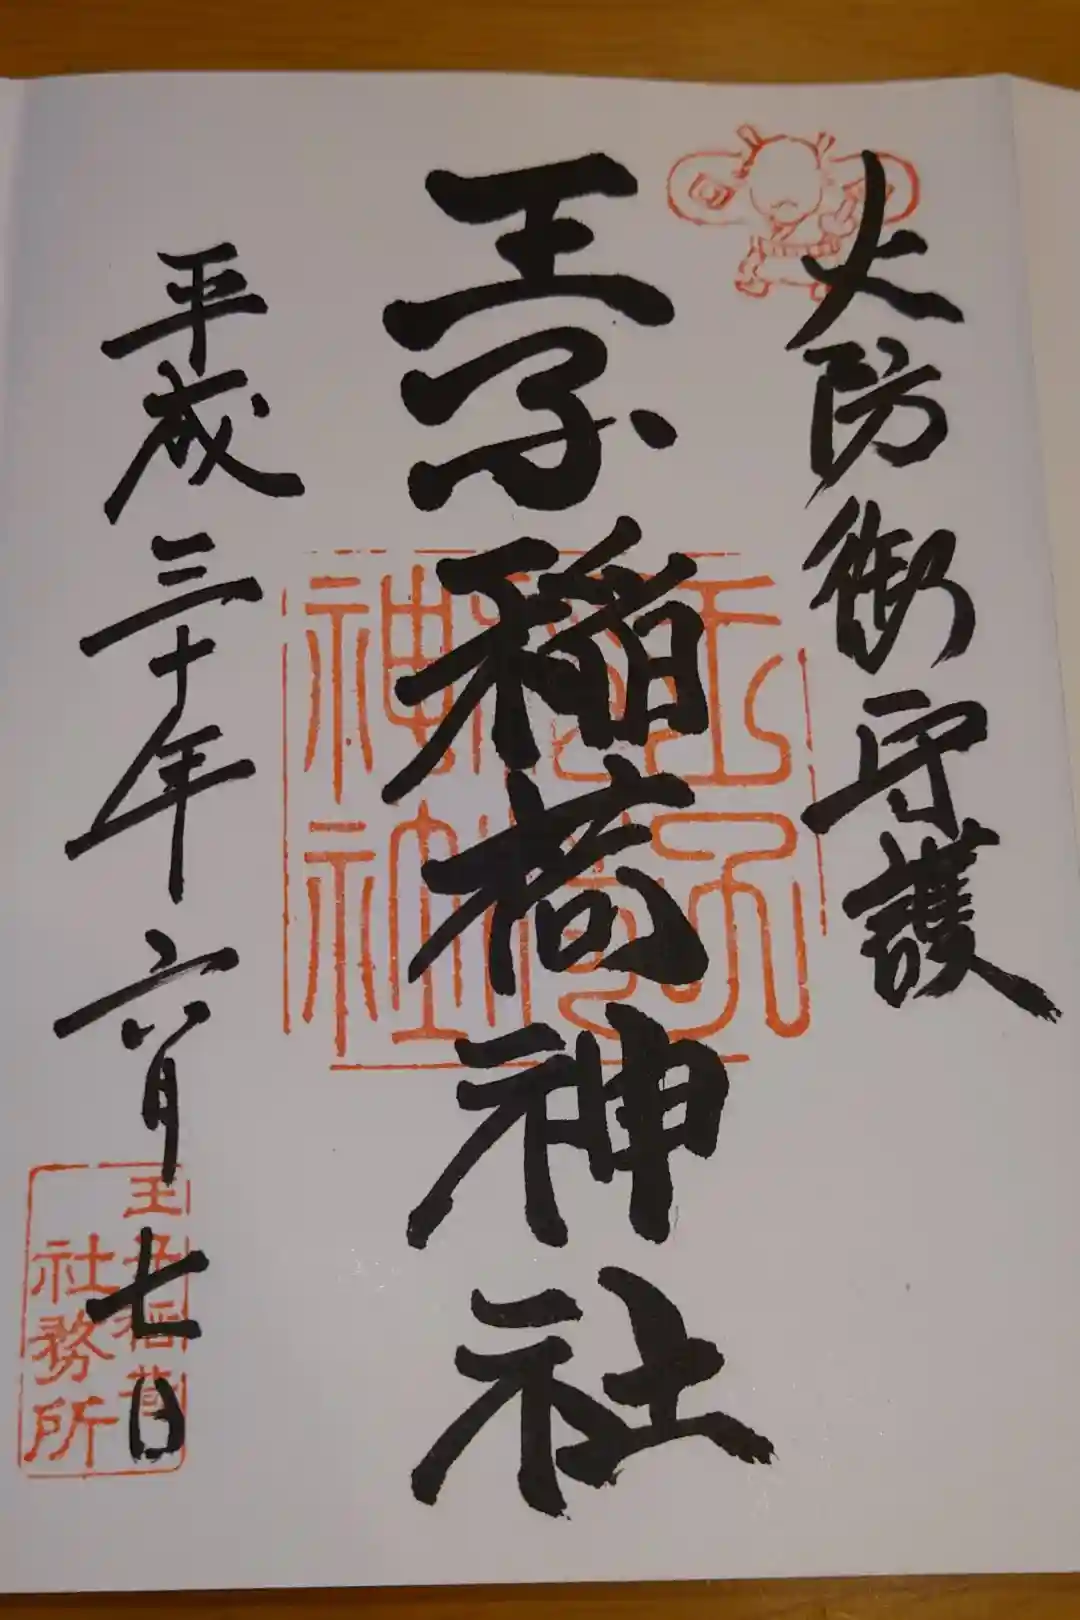 火防御守護
王子稲荷神社
王子稲荷神社
平成三十年六月七日
王子稲荷
社務所